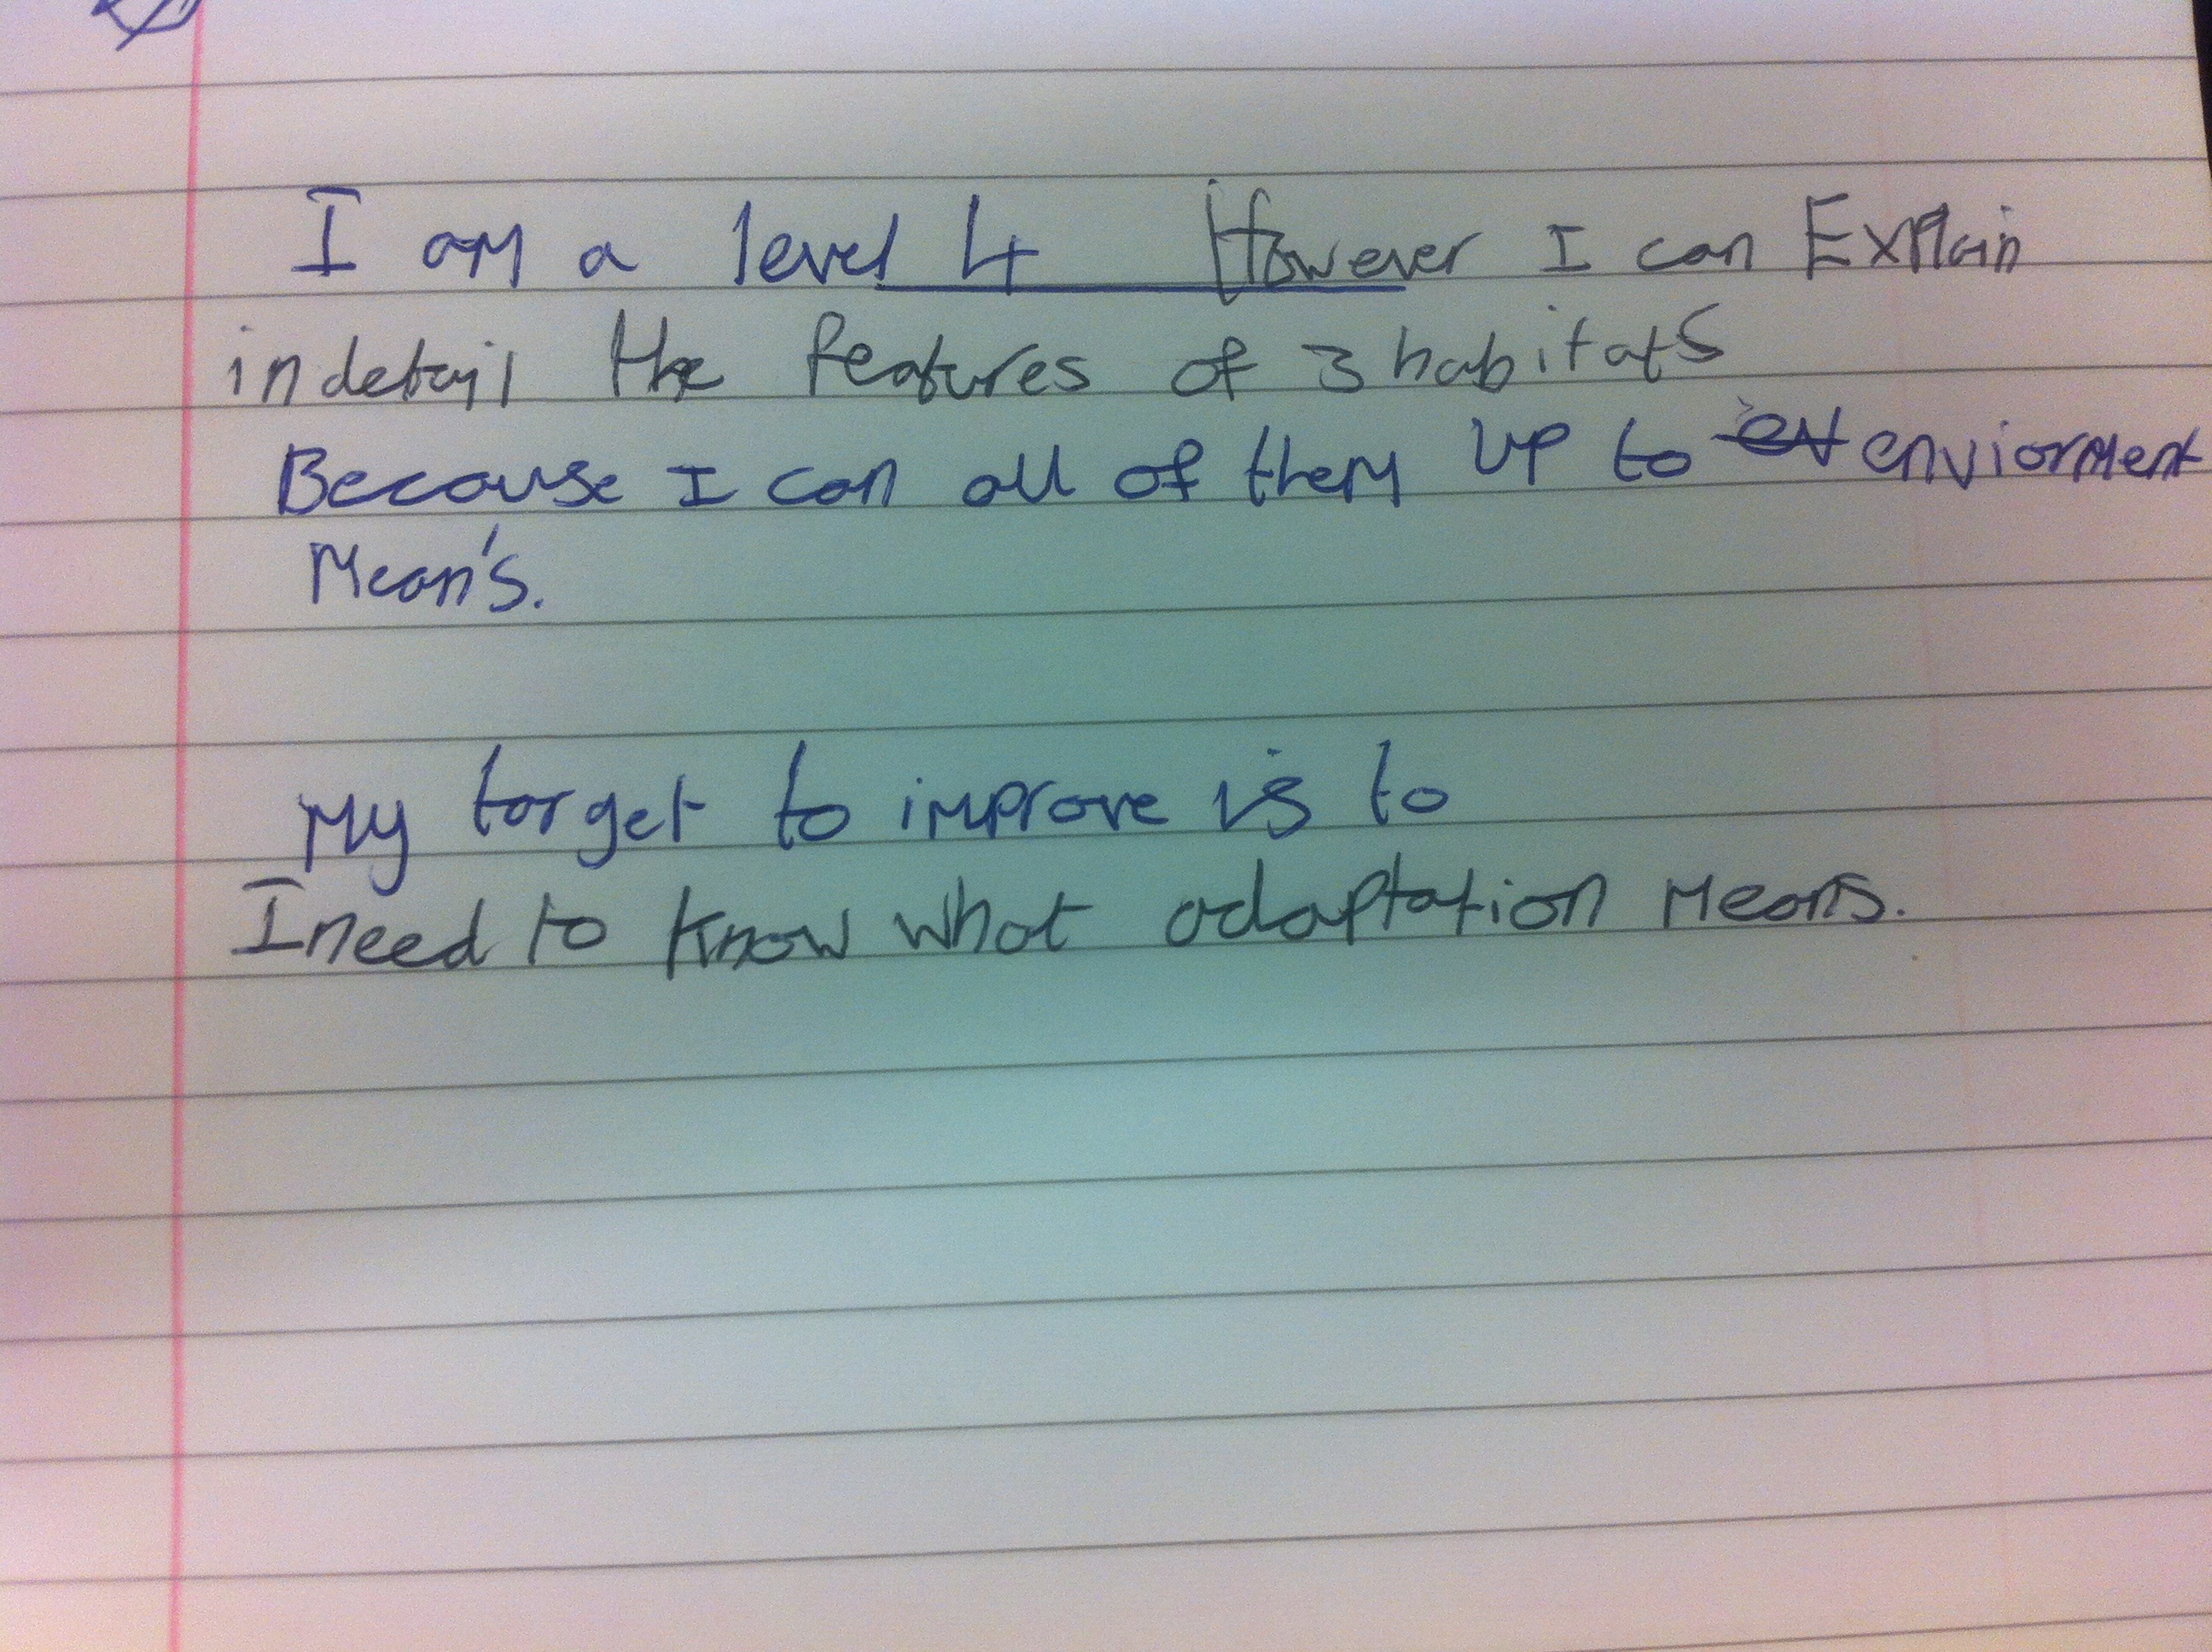 I am a level 4 However I can Explain
in detail the features of 3 habitats
Because I can all of them up to enviorment
Mean's.
My target to improve is to
I need to know what adaptation Means.